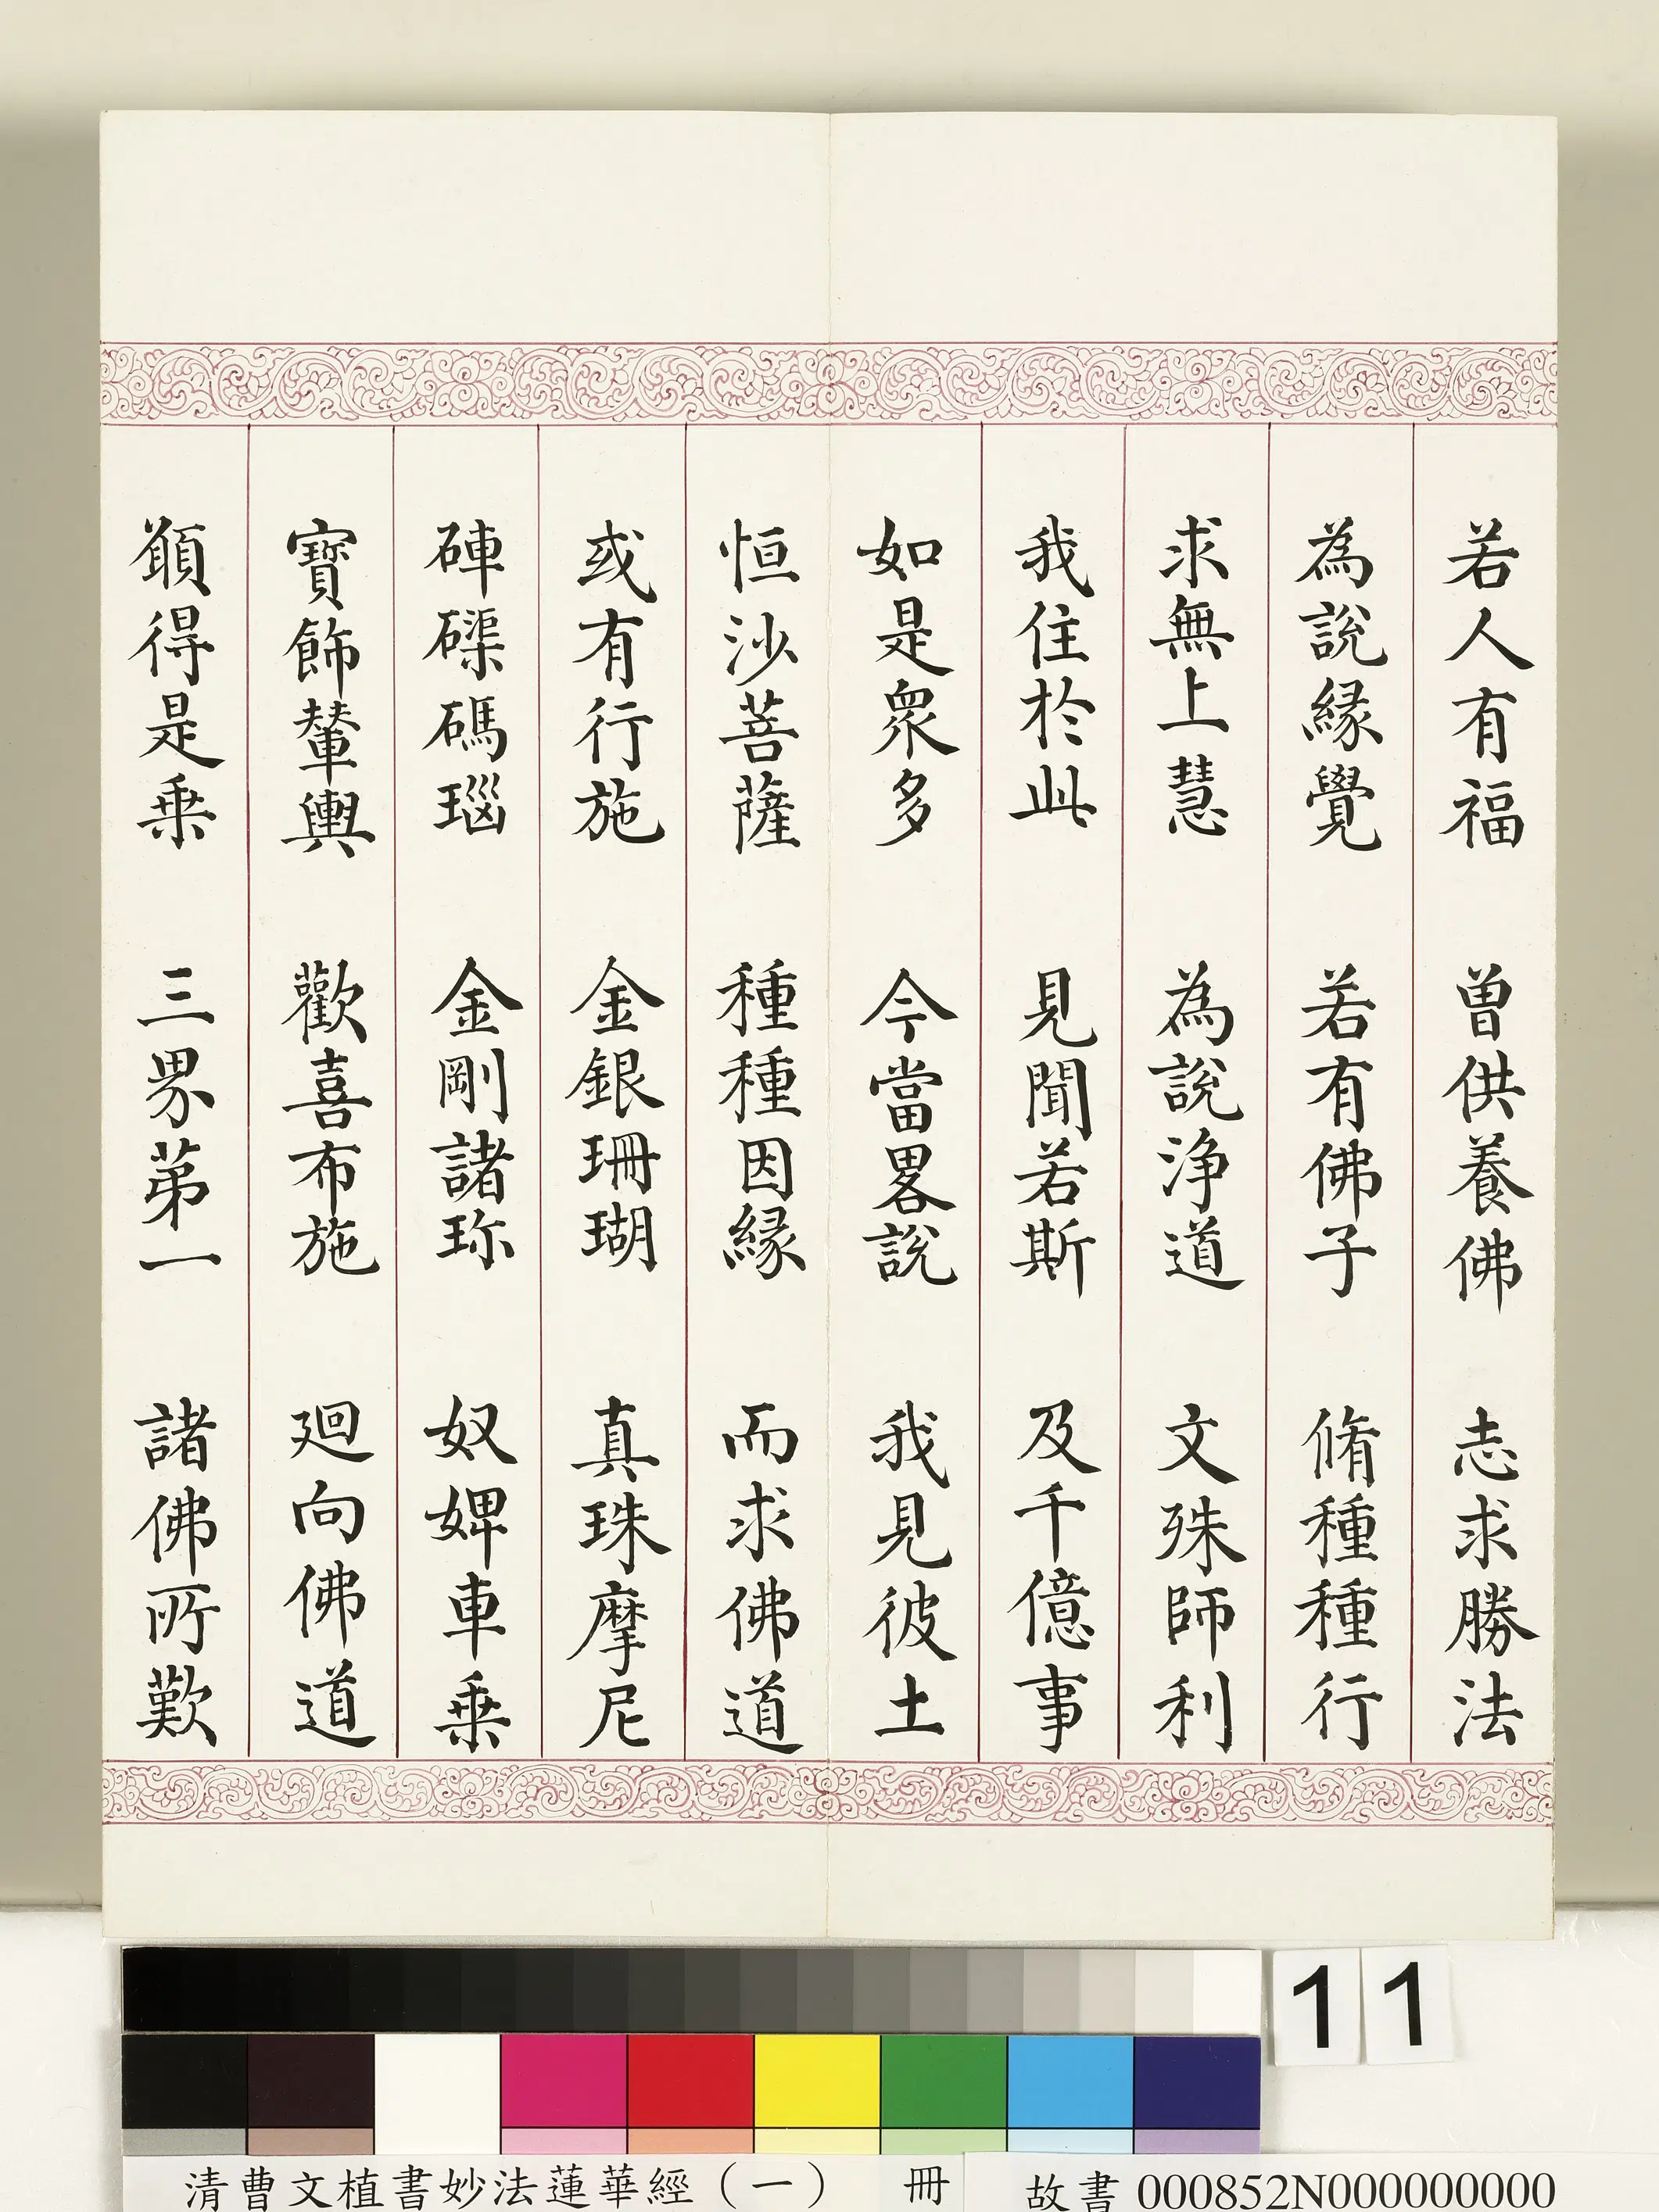 若人有福 曾供養佛 志求勝法
為說緣覺 若有佛子 脩種種行
求無上慧 為說淨道 文殊師利
我住於此 見聞若斯 及千億事
如是眾多 今當畧說 我見彼土
恒沙菩薩 種種因緣 而求佛道
或有行施 金銀珊瑚 真珠摩尼
硨磲碼瑙 金剛諸珎 奴婢車乗
寶飾輦輿 歡喜布施 廻向佛道
願得是乗 三界苐一 諸佛所歎
11
清曹文植書妙法蓮華經（一） 冊 故書000852N000000000